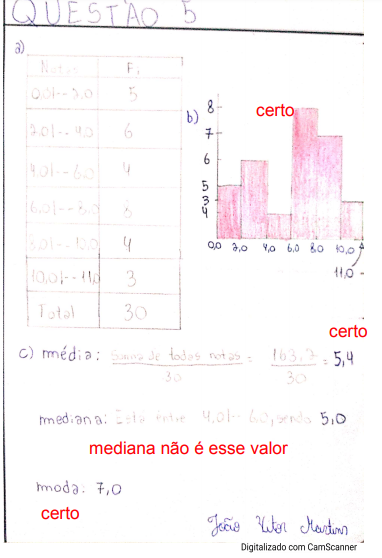 QUESTÃO 5
a)
Notas Fi
0,0|-- 2,0 5
2,0|-- 4,0 6
4,0|-- 6,0 4
6,0|-- 8,0 8
8,0|-- 10,0 4
10,0|-- 11,0 3
Total 30
b)
certo
8
7
6
5
3
4
0,0 2,0 4,0 6,0 8,0 10,0
11,0
certo
c) média: Soma de todas notas = 163,7 = 5,4
30 30
mediana: Está entre 4,0|-- 6,0, sendo 5,0
mediana não é esse valor
moda: 7,0
certo
João Vitor Martins
Digitalizado com CamScanner